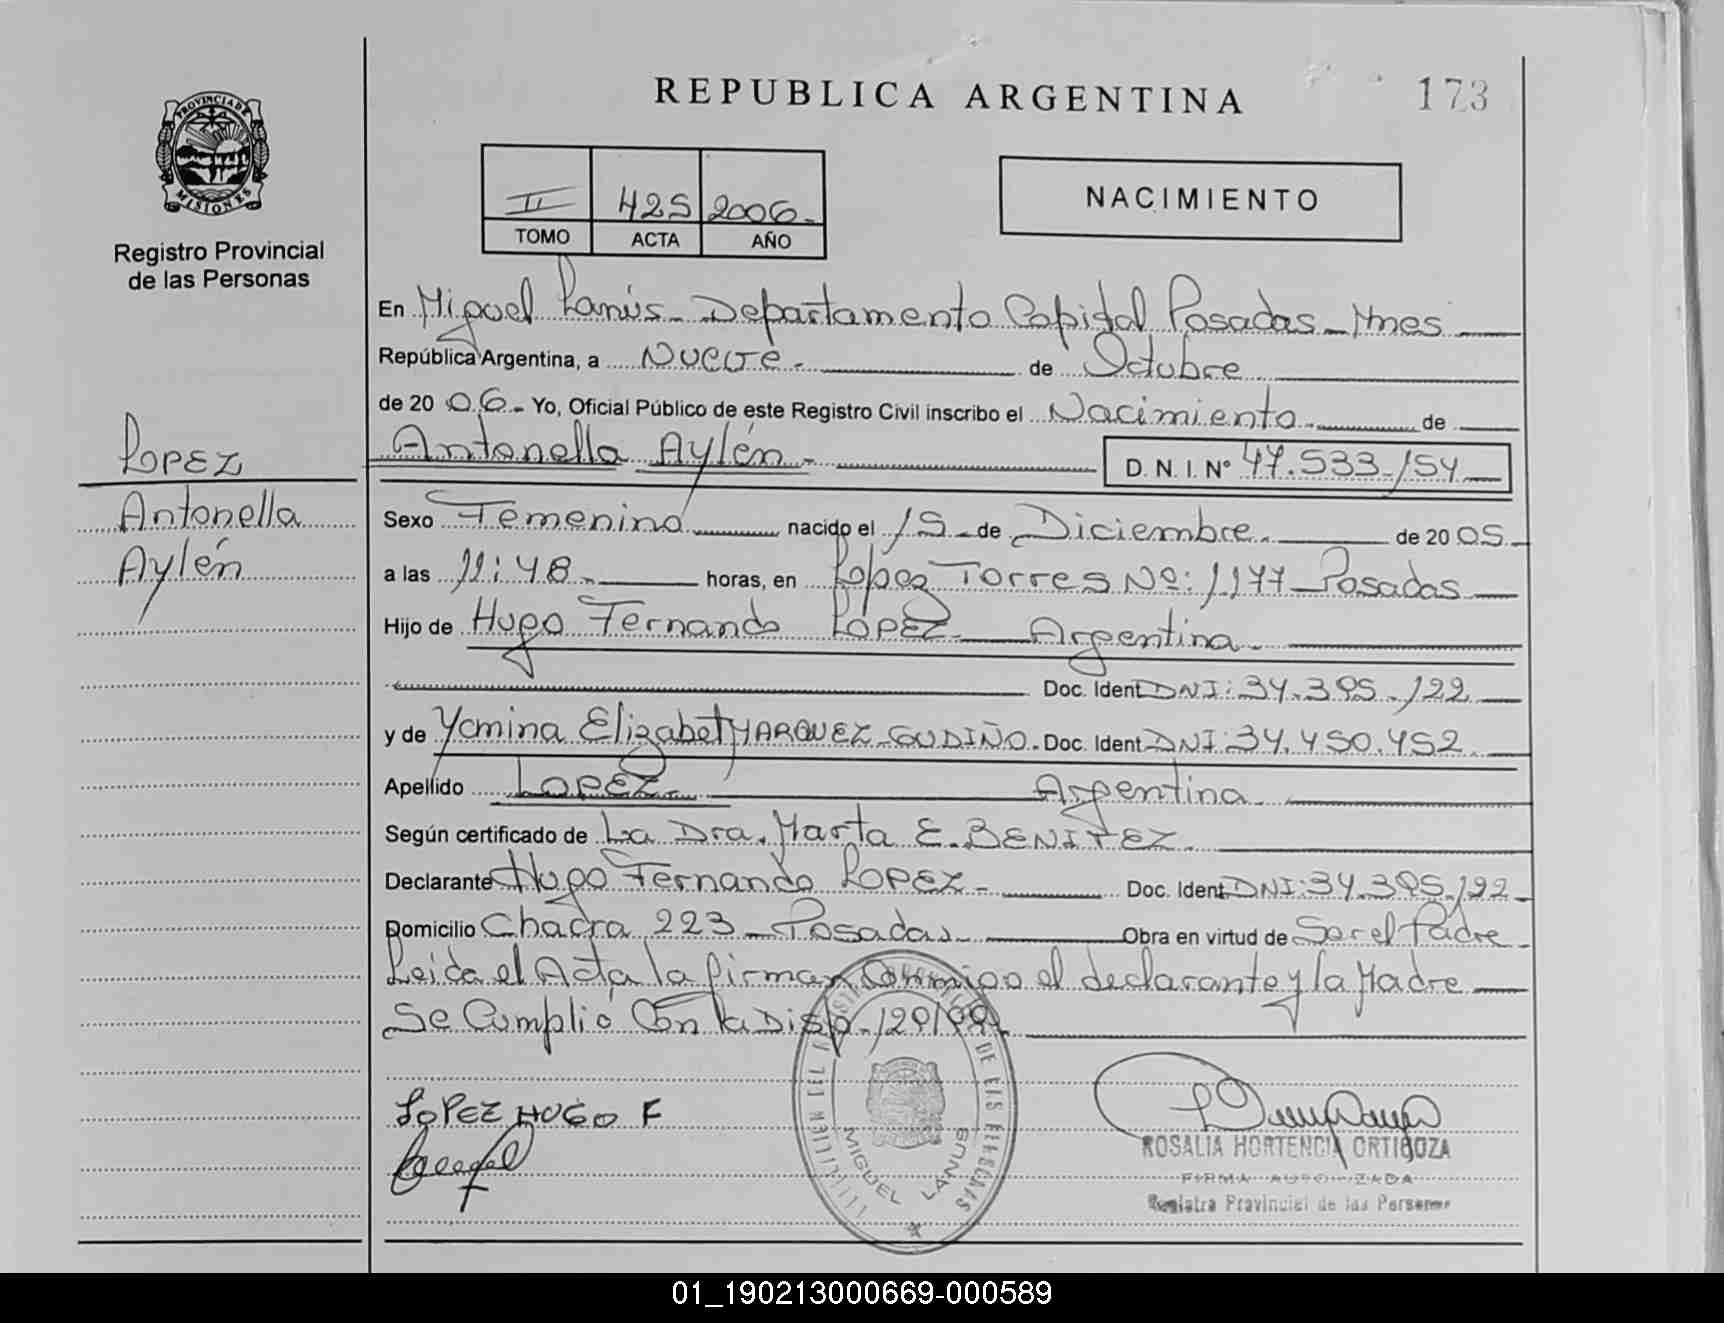 REPUBLICA ARGENTINA
173
PROVINCIA DE MISIONES
Registro Provincial
de las Personas
II 425 2006.-
TOMO ACTA AÑO
NACIMIENTO
En Miguel Lanús - Departamento Capital Posadas - Mnes
República Argentina, a Nueve - de Octubre
de 20 06.- Yo, Oficial Público de este Registro Civil inscribo el Nacimiento de
Antonella Aylén - D. N. I. Nº 47.533.154
LOPEZ
Antonella
Aylén
Sexo Femenino nacido el 15 de Diciembre. de 20 05
a las 11:48 horas, en López Torres Nº: 1177 - Posadas
Hijo de Hugo Fernando LOPEZ Argentina
Doc. Ident DNI: 34.395.122
y de Yamina Elizabet MARQUEZ GUDIÑO. Doc. Ident DNI: 34.450.452
Apellido LOPEZ Argentina
Según certificado de La Dra. Marta E. BENITEZ.
Declarante Hugo Fernando LOPEZ - Doc. Ident DNI: 34.395.122
Domicilio Chacra 223 - Posadas - Obra en virtud de Ser el Padre
Leida el Acta la firman Conmigo el declarante y la Madre
Se Cumplió Con la Disp. 120/99
LOPEZ HUGO F
MIGUEL LANUS
ROSALIA HORTENCIA ORTIGOZA
FIRMA AUTORIZADA
Registro Provincial de las Personas
01_190213000669-000589